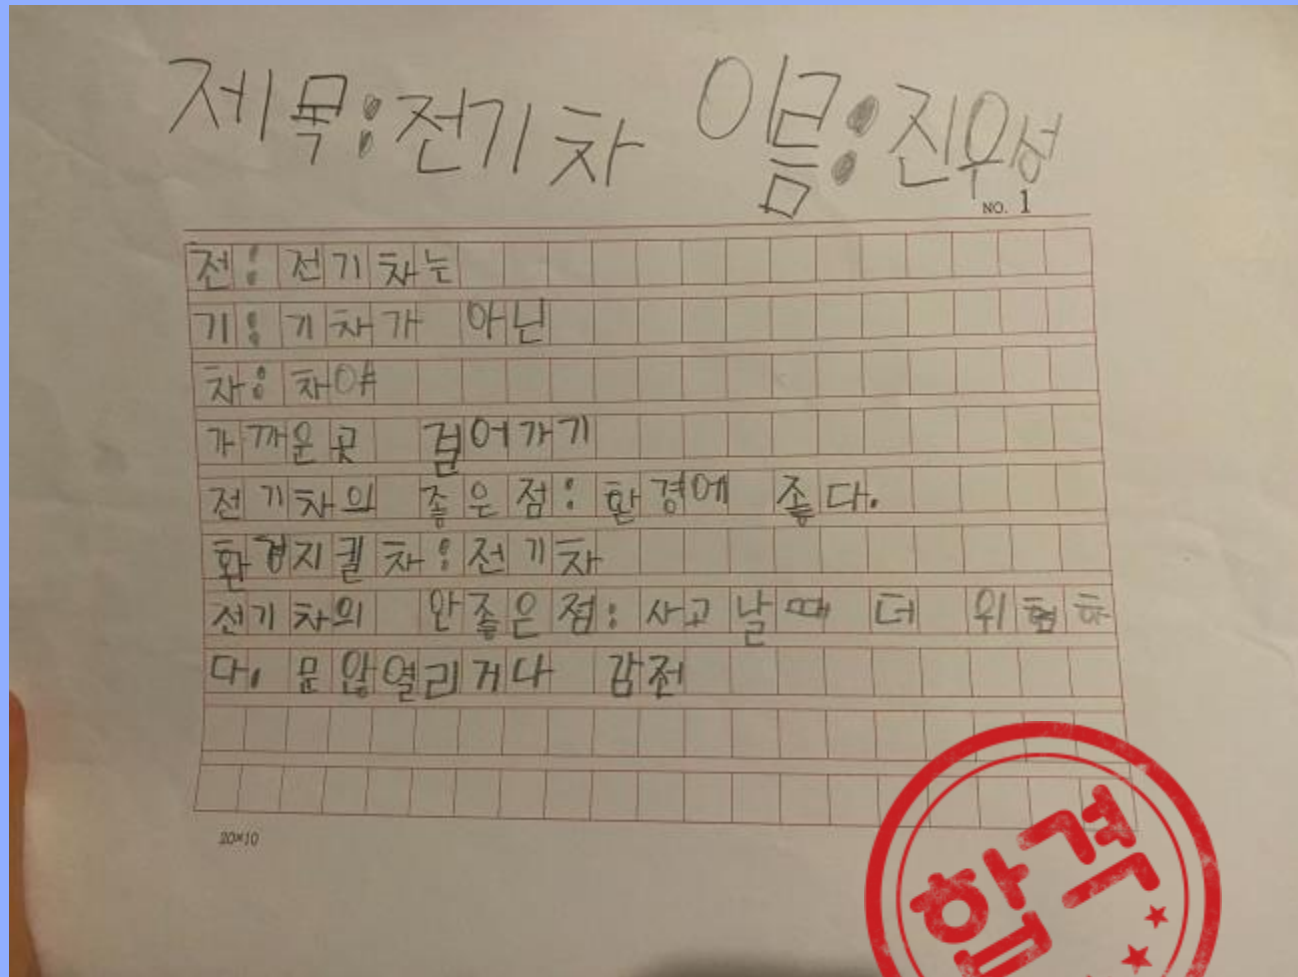 제목:전기차 이름:진우성
NO. 1
전: 전기차는
기: 기차가 아닌
차: 차야
가까운곳 걸어가기
전기차의 좋은점:환경에 좋다.
환경지킬차:전기차
전기차의 안좋은점:사고날때 더 위험하
다. 문않열리거나 감전
20×10
합격